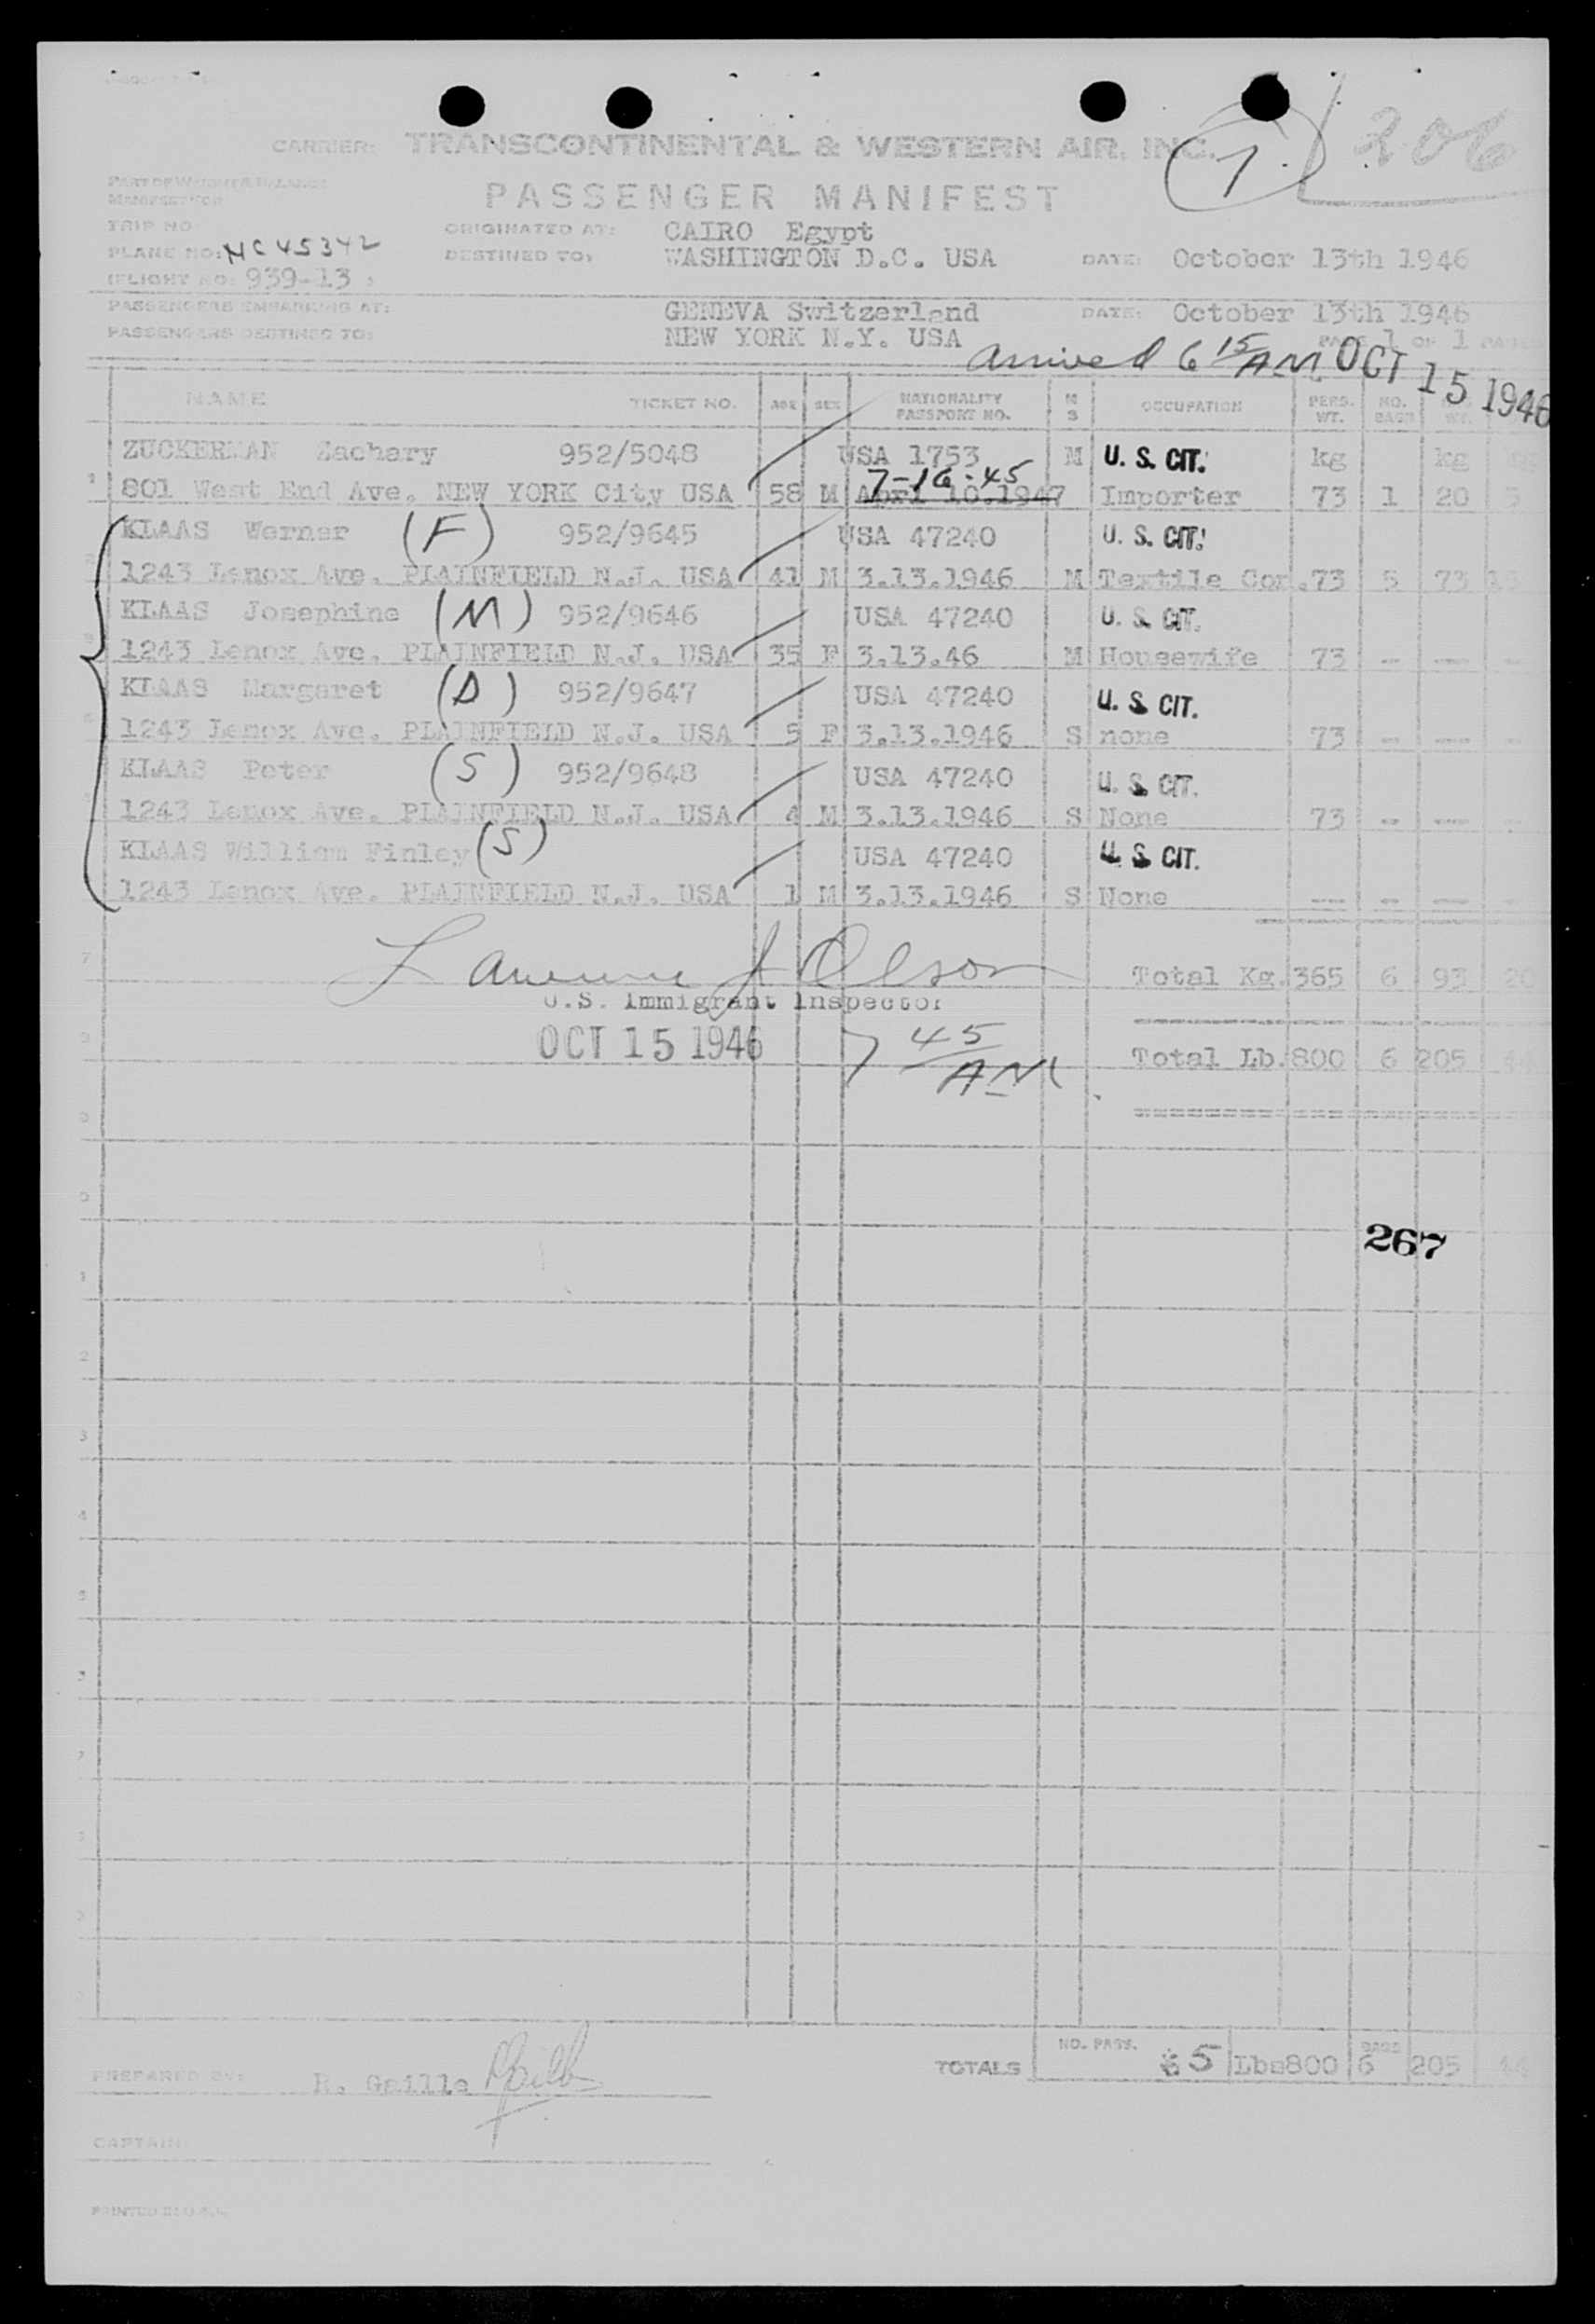 206
CARRIER: TRANSCONTINENTAL & WESTERN AIR, INC. 7
PART OF WEIGHT & BALANCE
MANIFEST FOR
PASSENGER MANIFEST
TRIP NO. ORIGINATED AT: CAIRO Egypt
PLANE NO: NC45342 DESTINED TO: WASHINGTON D.C. USA DATE: October 13th 1946
(FLIGHT NO: 939-13
PASSENGERS EMBARKING AT: GENEVA Switzerland DATE: October 13th 1946
PASSENGERS DESTINED TO: NEW YORK N.Y. USA PAGE 1 OF 1 PAGES
arrived 6 15 AM OCT 15 1946
NAME TICKET NO. AGE SEX NATIONALITY PASSPORT NO. M S OCCUPATION PERS. WT. NO. BAGS WT.
ZUCKERMAN Zachary 952/5048 USA 1753 M U. S. CIT. kg kg
7-16-45
1 801 West End Ave. NEW YORK City USA 58 M April 10.1947 Importer 73 1 20 5
KLAAS Werner (F) 952/9645 USA 47240 U. S. CIT.
1243 Lenox Ave. PLAINFIELD N.J. USA 41 M 3.13.1946 M Textile Con. 73 5 73
KLAAS Josephine (M) 952/9646 USA 47240 U. S. CIT.
1243 Lenox Ave. PLAINFIELD N.J. USA 35 F 3.13.46 M Housewife 73 -- --- --
KLAAS Margaret (D) 952/9647 USA 47240 U. S. CIT.
1243 Lenox Ave. PLAINFIELD N.J. USA 5 F 3.13.1946 S none 73 -- --- --
KLAAS Peter (S) 952/9648 USA 47240 U. S. CIT.
1243 Lenox Ave. PLAINFIELD N.J. USA 4 M 3.13.1946 S None 73 -- --- --
KLAAS William Finley (S) USA 47240 U. S. CIT.
1243 Lenox Ave. PLAINFIELD N.J. USA 1 M 3.13.1946 S None --- -- --- --
7 Lawrence J Olson Total Kg. 365 6 93 20
U.S. Immigrant Inspector
OCT 15 1946 7 45 AM Total Lb. 800 6 205 44
267
TOTALS NO. PASS. 5 Lbs800 BAGS 6 205 44
PREPARED BY: R. Gaille
CAPTAIN:
PRINTED IN U.S.A.